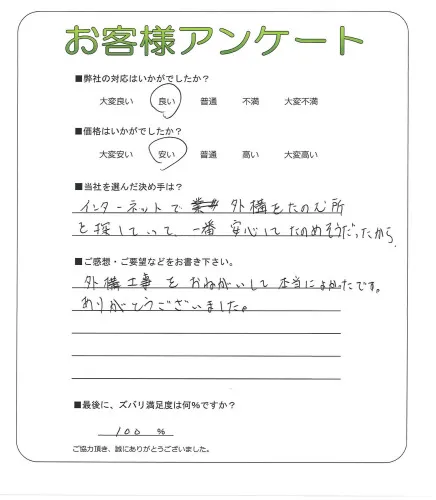 お客様アンケート
■弊社の対応はいかがでしたか?
大変良い 良い 普通 不満 大変不満
■価格はいかがでしたか?
大変安い 安い 普通 高い 大変高い
■当社を選んだ決め手は?
インターネットで 外構をたのむ所
を探していて、一番 安心してたのめそうだったから。
■ご感想・ご要望などをお書き下さい。
外構工事を おねがいして 本当によかったです。
ありがとうございました。
■最後に、ズバリ満足度は何%ですか?
100 %
ご協力頂き、誠にありがとうございました。